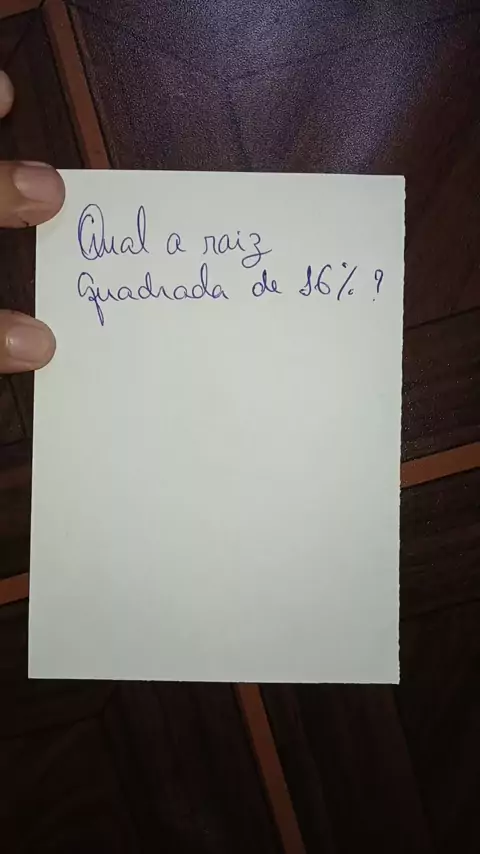 Qual a raiz
quadrada de 16% ?